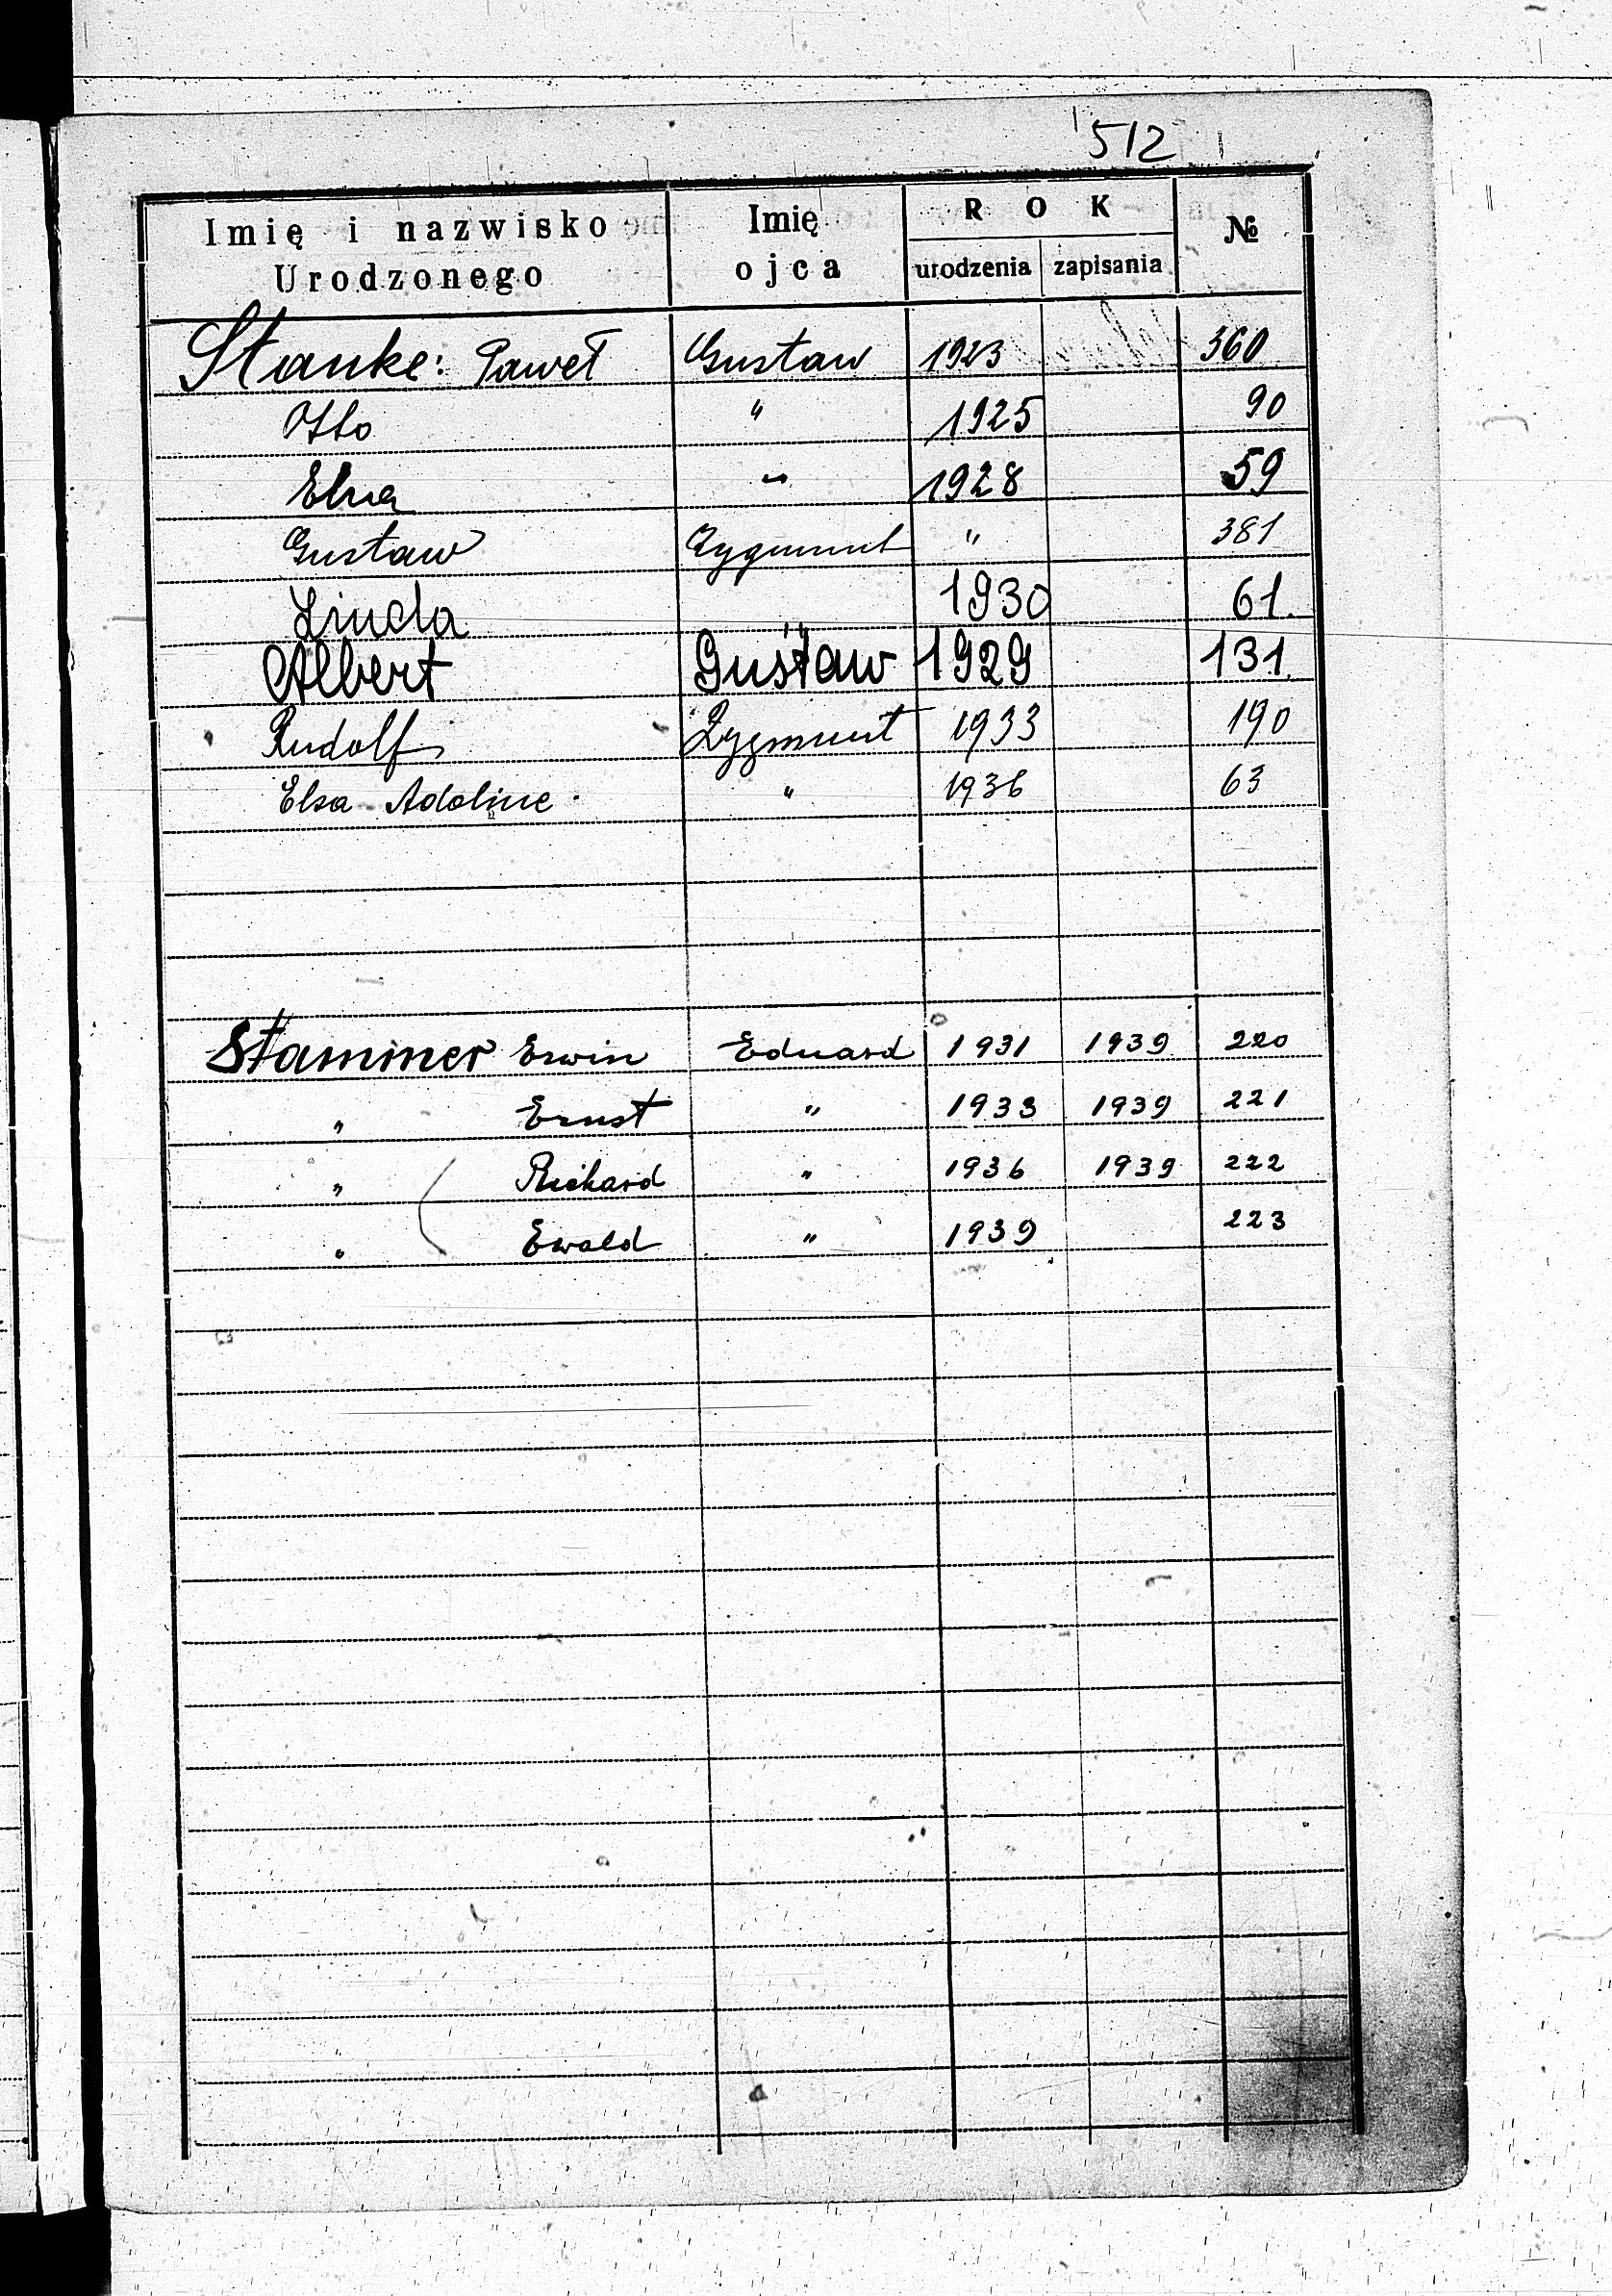 512
Imię i nazwisko Urodzonego Imię ojca ROK urodzenia zapisania №
Stanke: Paweł Gustaw 1923 360
Otto " 1925 90
Elna " 1928 59
Gustaw Zygmunt " 381
Linda " 1930 61.
Albert Gustaw 1929 131.
Rudolf Zygmunt 1933 190
Elsa Adoline " 1936 63
Stammer Erwin Eduard 1931 1939 220
" Ernst " 1933 1939 221
" Richard " 1936 1939 222
" Ewald " 1939 223